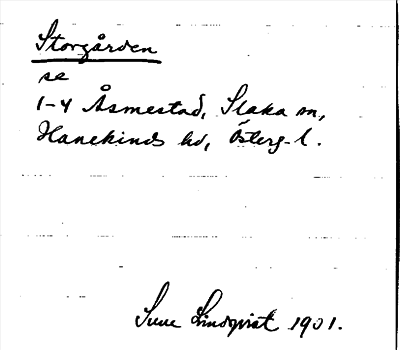 Storgården
se
1-4 Åsmestad, Slaka sn,
Hanekinds hd, Österg. l.
Sune Lindqvist 1901.